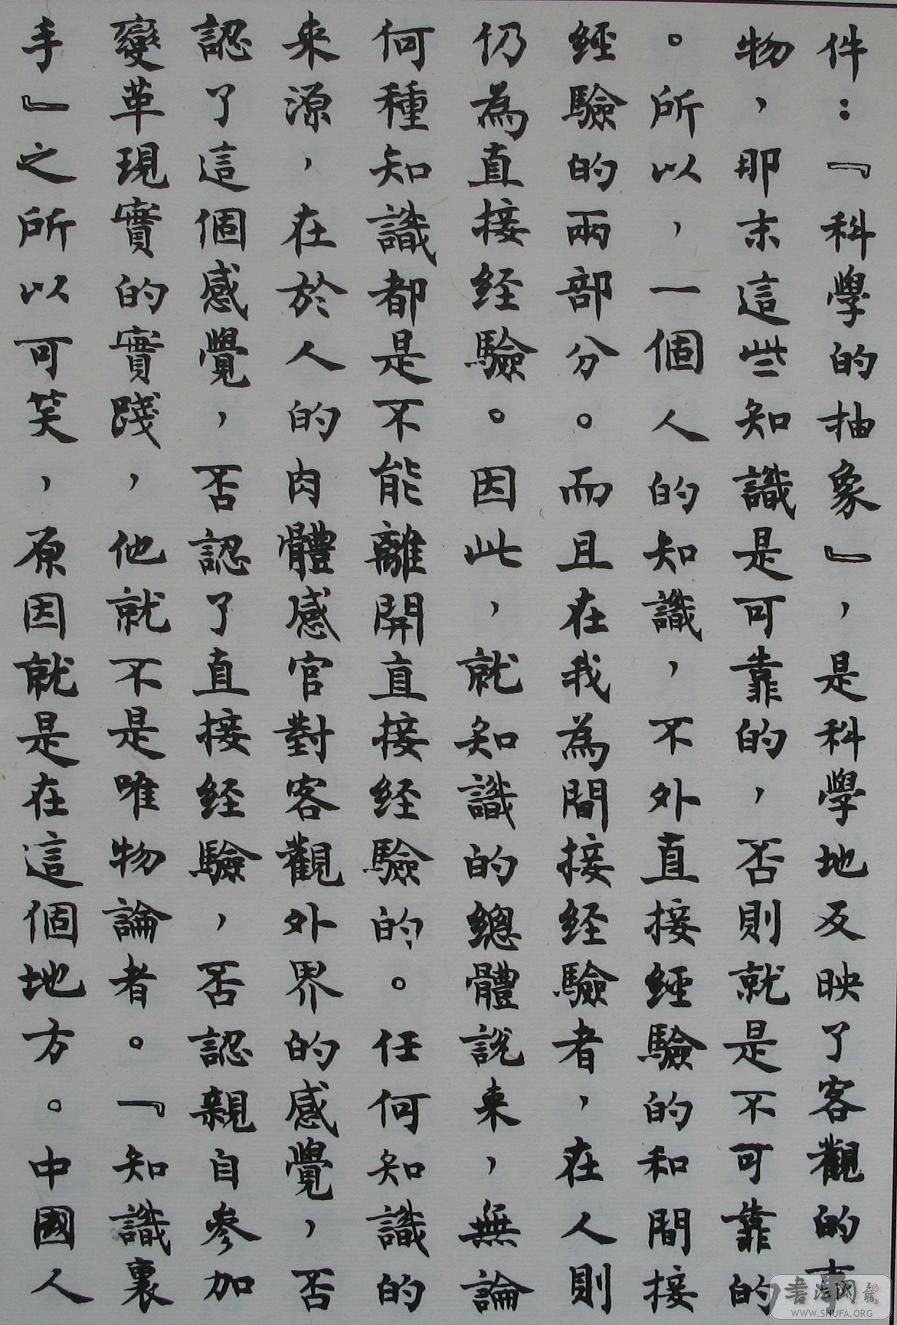 件：『科學的抽象』，是科學地反映了客觀的事
物，那末這些知識是可靠的，否則就是不可靠的
。所以，一個人的知識，不外直接經驗的和間接
經驗的兩部分。而且在我為間接經驗者，在人則
仍為直接經驗。因此，就知識的總體說来，無論
何種知識都是不能離開直接經驗的。任何知識的
来源，在於人的肉體感官對客觀外界的感覺，否
認了這個感覺，否認了直接經驗，否認親自參加
變革現實的實踐，他就不是唯物論者。『知識裏
手』之所以可笑，原因就是在這個地方。中國人
书法网
WWW.SHUFA.ORG